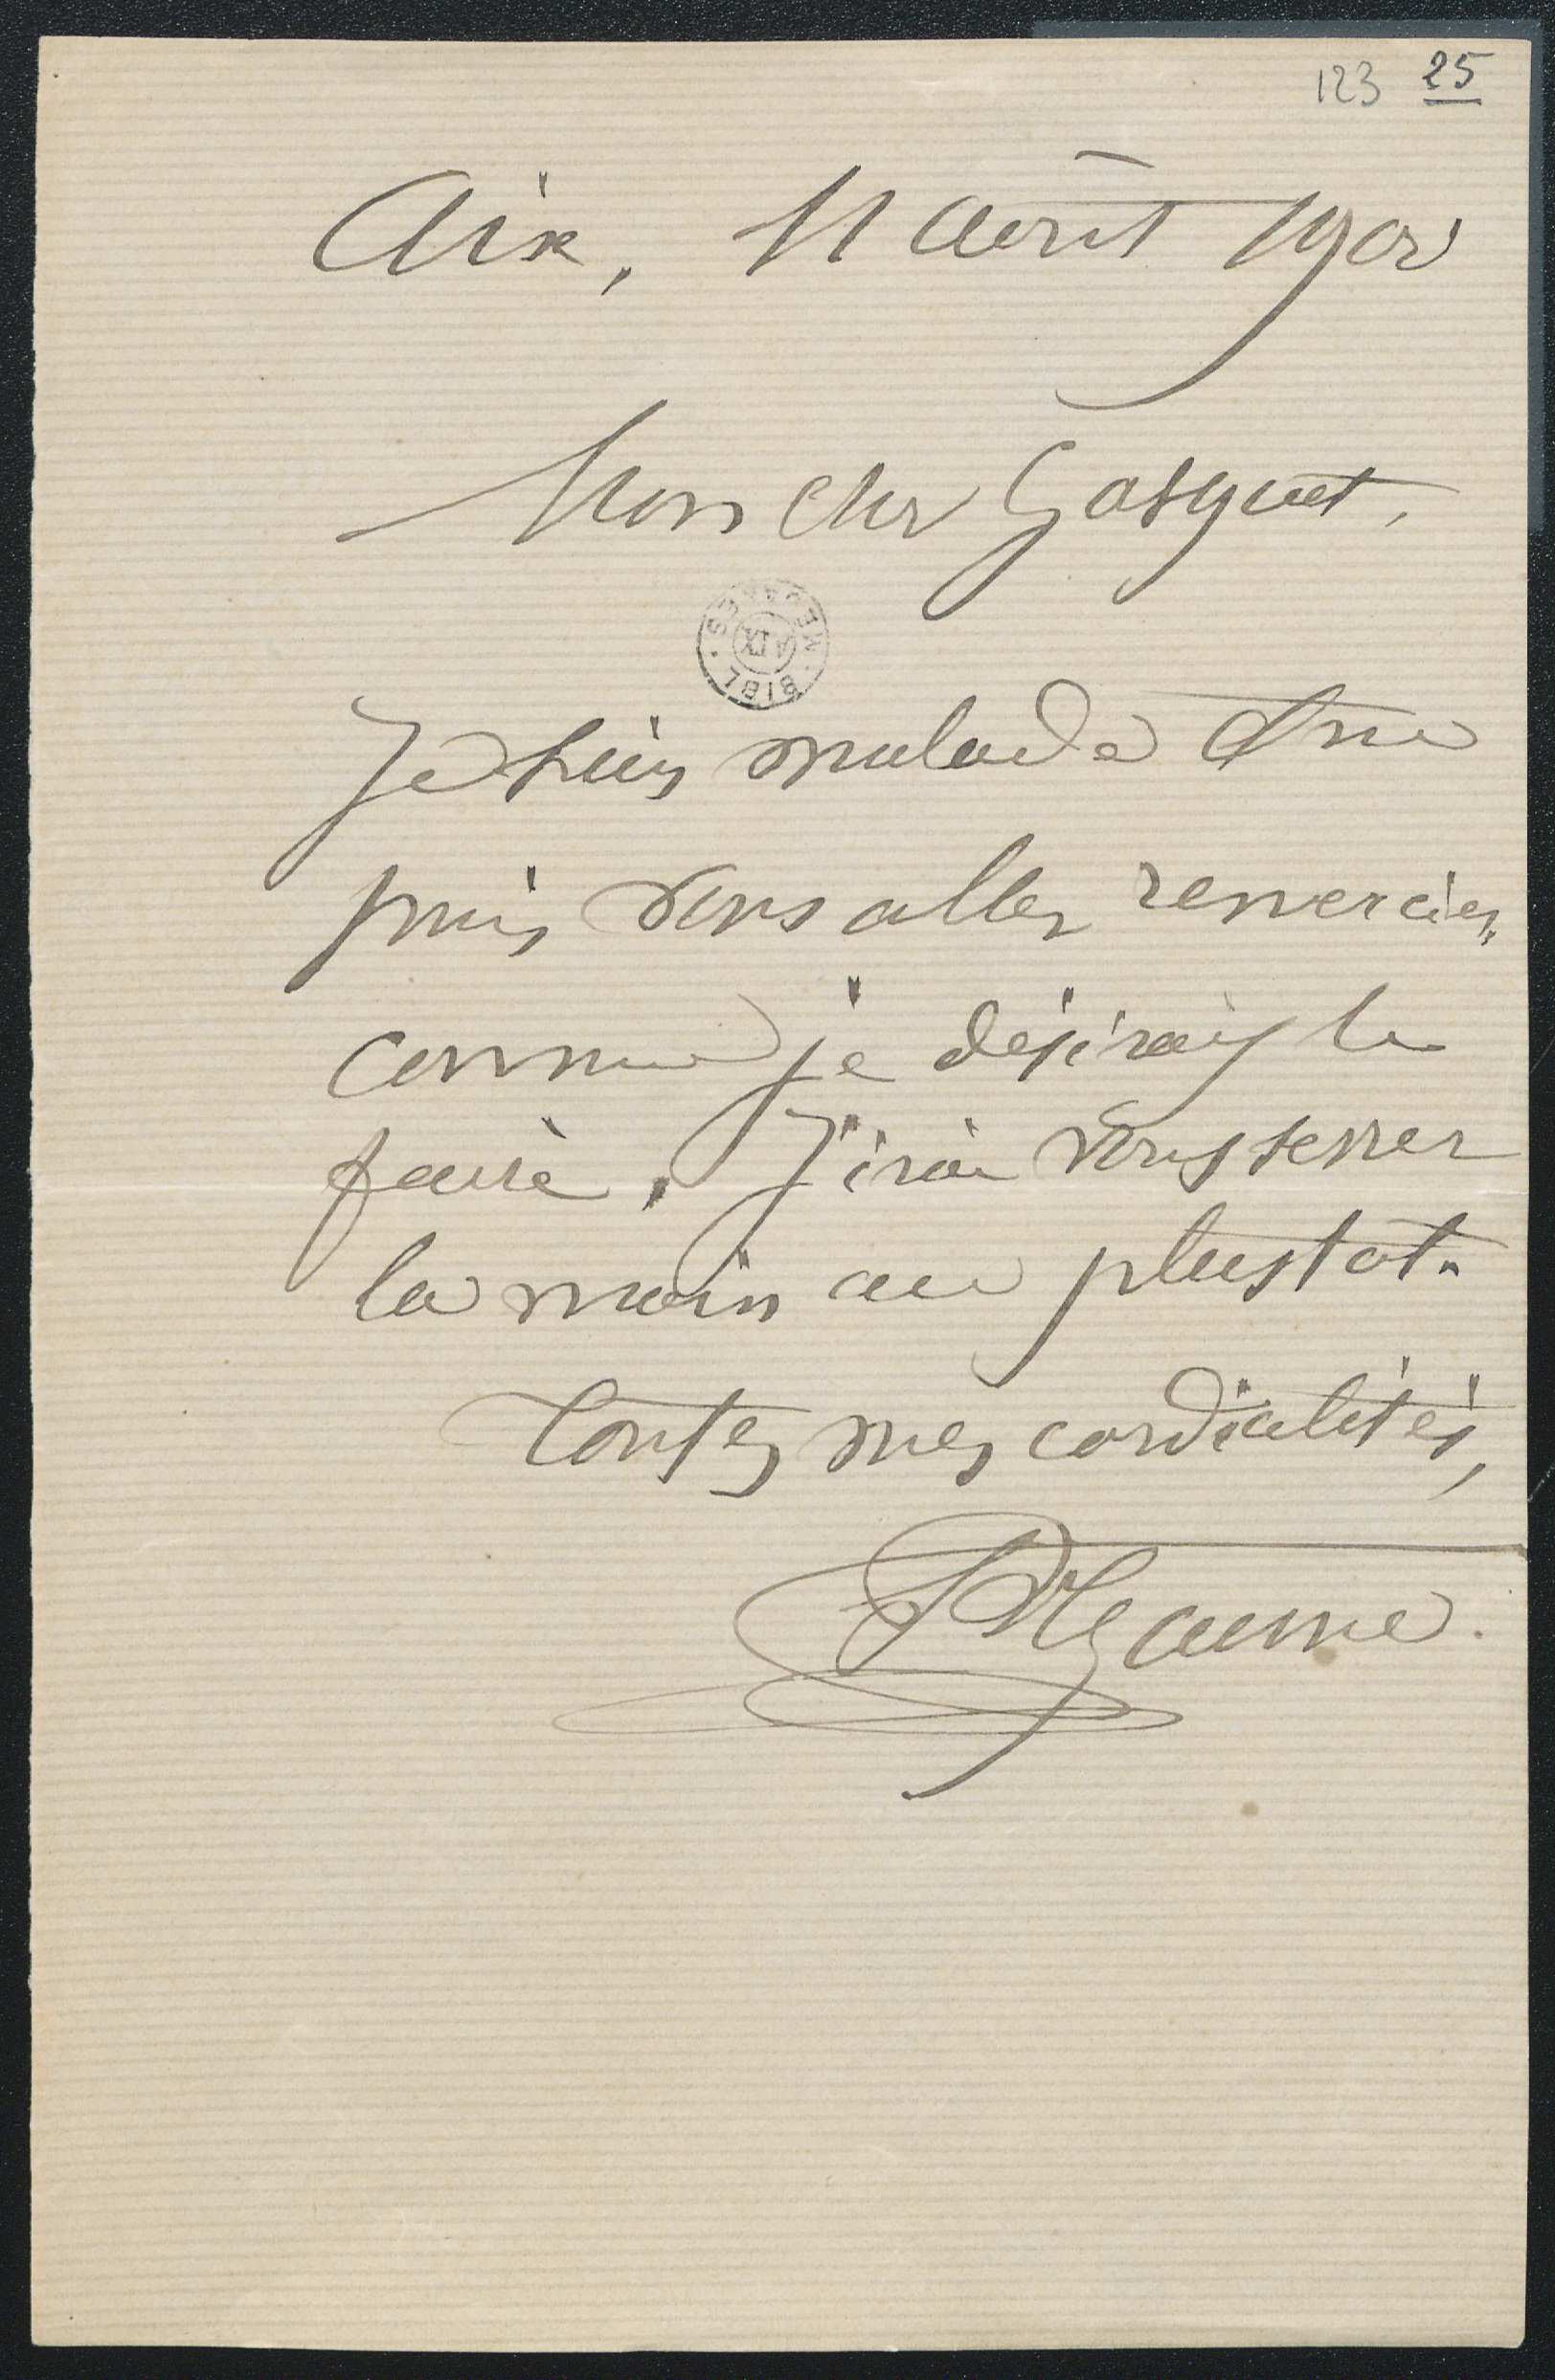 123 25
Aix, 11 août 1900
Mon cher Gasquet,
BIBL. MEJANES. AIX
Je suis malade & ne
puis vous aller remercier,
comme je désirais le
faire. J'irai vous serrer
la main au plustôt.
Toutes mes cordialités,
P Cezanne.